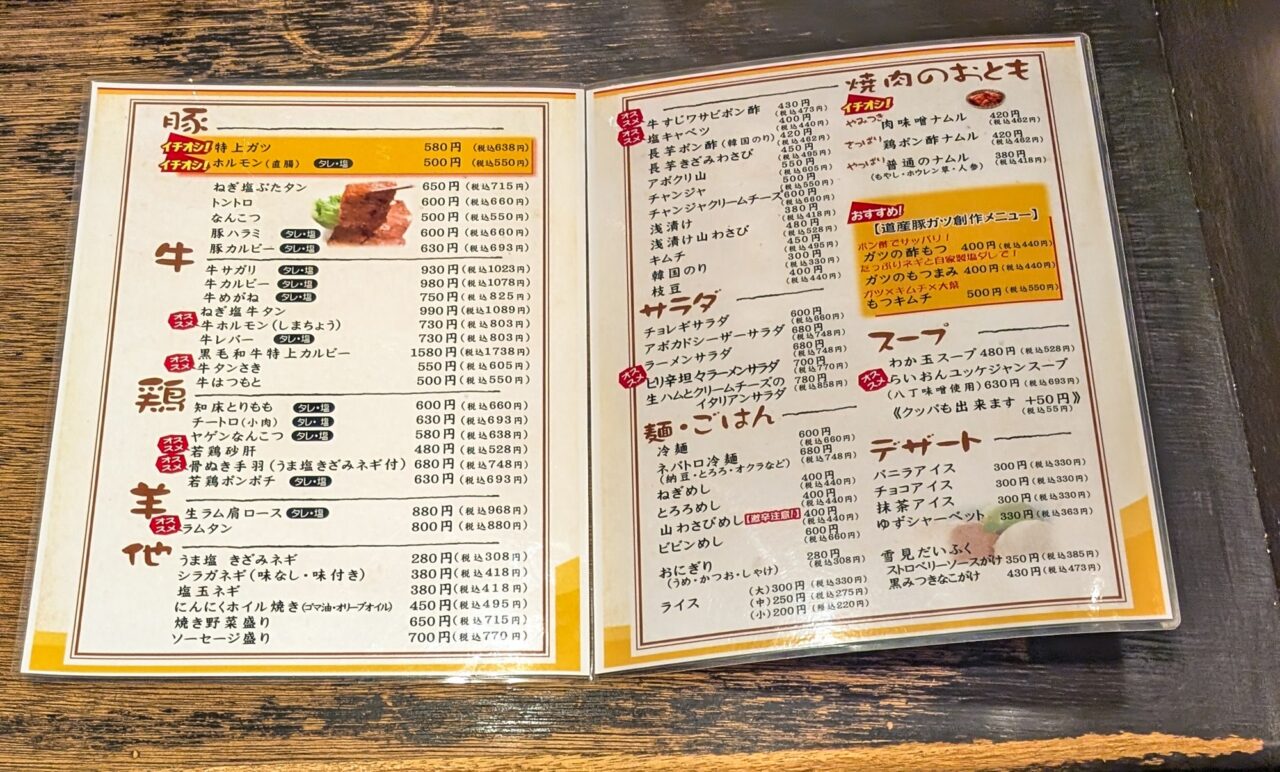 豚
イチオシ! 特上ガツ 580円 (税込638円)
イチオシ! ホルモン(直腸) タレ・塩 500円 (税込550円)
ねぎ塩ぶたタン 650円(税込715円)
トントロ 600円(税込660円)
なんこつ 500円(税込550円)
豚ハラミ タレ・塩 600円(税込660円)
豚カルビー タレ・塩 630円(税込693円)
牛
牛サガリ タレ・塩 930円(税込1023円)
牛カルビー タレ・塩 980円(税込1078円)
牛めがね タレ・塩 750円(税込825円)
ねぎ塩牛タン 990円(税込1089円)
オススメ 牛ホルモン(しまちょう) 730円(税込803円)
牛レバー タレ・塩 730円(税込803円)
黒毛和牛特上カルビー 1580円(税込1738円)
オススメ 牛タンさき 550円(税込605円)
牛はつもと 500円(税込550円)
鶏
知床とりもも タレ・塩 600円(税込660円)
チートロ(小肉) タレ・塩 630円(税込693円)
ヤゲンなんこつ タレ・塩 580円(税込638円)
オススメ 若鶏砂肝 480円(税込528円)
オススメ 骨ぬき手羽(うま塩きざみネギ付) 680円(税込748円)
若鶏ボンポチ タレ・塩 630円(税込693円)
羊
生ラム肩ロース タレ・塩 880円(税込968円)
オススメ ラムタン 800円(税込880円)
他
うま塩 きざみネギ 280円(税込308円)
シラガネギ(味なし・味付き) 380円(税込418円)
塩玉ネギ 380円(税込418円)
にんにくホイル焼き(ゴマ油・オリーブオイル) 450円(税込495円)
焼き野菜盛り 650円(税込715円)
ソーセージ盛り 700円(税込770円)
焼肉のおとも
オススメ 牛すじワサビポン酢 430円(税込473円)
オススメ 塩キャベツ 400円(税込440円)
長芋ポン酢(韓国のり) 420円(税込462円)
長芋きざみわさび 450円(税込495円)
アボクリ山 550円(税込605円)
チャンジャ 500円(税込550円)
チャンジャクリームチーズ 600円(税込660円)
浅漬け 380円(税込418円)
浅漬け山わさび 480円(税込528円)
キムチ 450円(税込495円)
韓国のり 300円(税込330円)
枝豆 400円(税込440円)
サラダ
チョレギサラダ 600円(税込660円)
アボカドシーザーサラダ 680円(税込748円)
ラーメンサラダ 680円(税込748円)
オススメ ピリ辛坦々ラーメンサラダ 700円(税込770円)
生ハムとクリームチーズの
イタリアンサラダ 780円(税込858円)
麺・ごはん
冷麺 600円(税込660円)
ネバトロ冷麺 680円(税込748円)
(納豆・とろろ・オクラなど)
ねぎめし 400円(税込440円)
とろろめし 400円(税込440円)
山わさびめし【激辛注意!】 400円(税込440円)
ビビンめし 600円(税込660円)
おにぎり 280円(税込308円)
(うめ・かつお・しゃけ)
ライス (大)300円(税込330円)
(中)250円(税込275円)
(小)200円(税込220円)
イチオシ!
やみつき 肉味噌ナムル 420円(税込462円)
さっぱり 鶏ポン酢ナムル 420円(税込462円)
やっぱり 普通のナムル 380円(税込418円)
(もやし・ホウレン草・人参)
おすすめ!
【道産豚ガツ創作メニュー】
ポン酢でサッパリ!
ガツの酢もつ 400円(税込440円)
たっぷりネギと自家製塩ダレで!
ガツのもつまみ 400円(税込440円)
ガツ×キムチ×大葉
もつキムチ 500円(税込550円)
スープ
わか玉スープ 480円(税込528円)
オススメ らいおんユッケジャンスープ
(八丁味噌使用) 630円(税込693円)
《クッパも出来ます +50円》
(税込55円)
デザート
バニラアイス 300円(税込330円)
チョコアイス 300円(税込330円)
抹茶アイス 300円(税込330円)
ゆずシャーベット 330円(税込363円)
雪見だいふく
ストロベリーソースがけ 350円(税込385円)
黒みつきなこがけ 430円(税込473円)